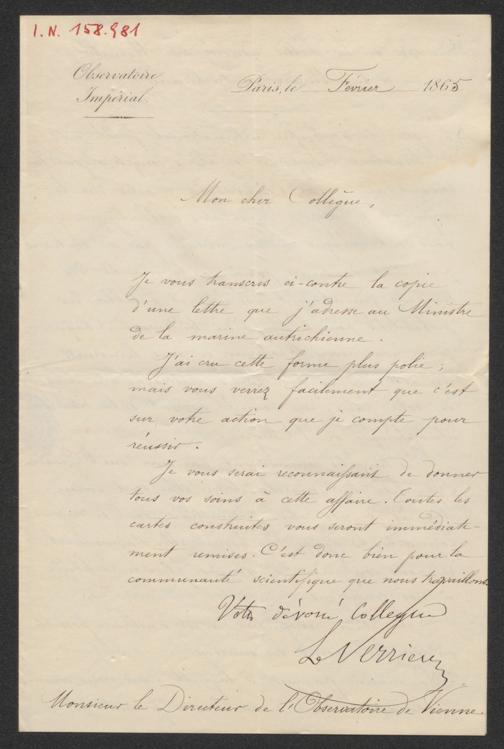 I.N. 158.981
Observatoire
Impérial
Paris, le Février 1865
Mon cher Collègue,
Je vous transcris ci-contre la copie
d'une lettre que j'adresse au Ministre
de la marine autrichienne.
J'ai cru cette forme plus polie ;
mais vous verrez facilement que c'est
sur votre action que je compte pour
réussir.
Je vous serai reconnaissant de donner
tous vos soins à cette affaire. Toutes les
cartes construites vous seront immédiate-
ment remises. C'est donc bien pour la
communauté scientifique que nous travaillons
Votre dévoué Collegue
Le Verrier
Monsieur le Directeur de l'Observatoire de Vienne